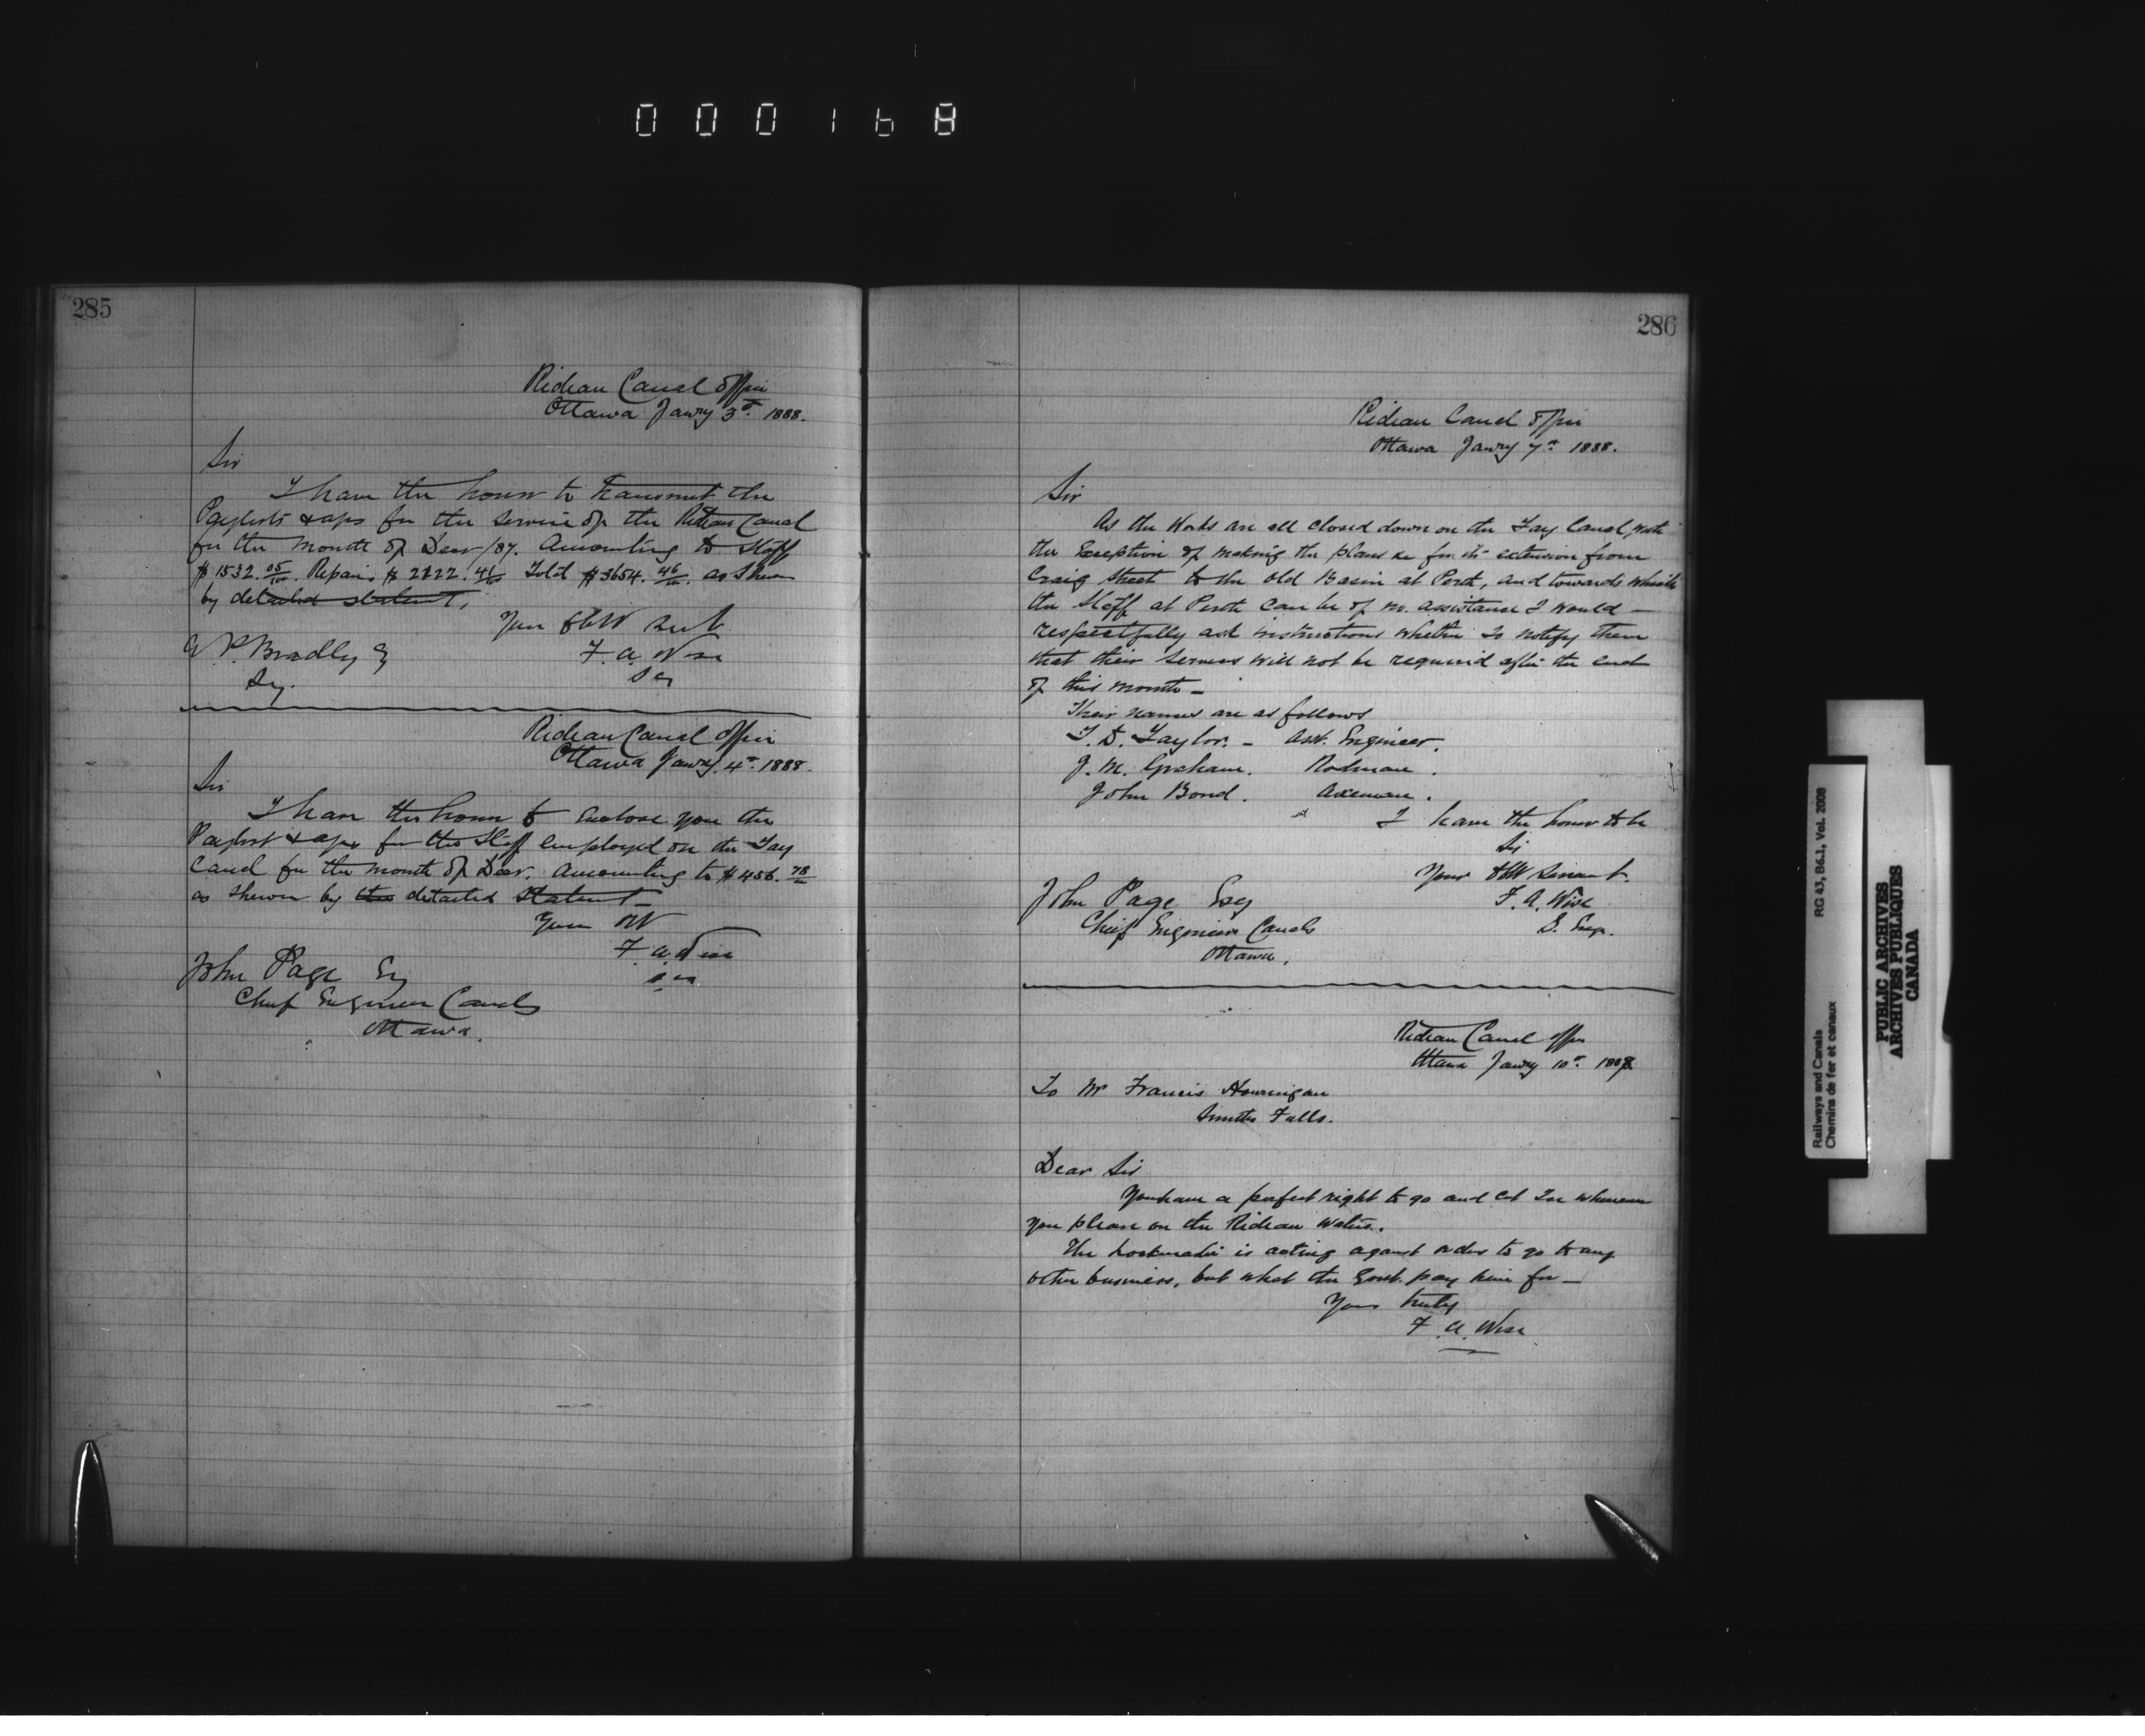 000168
285
Rideau Canal Office
Ottawa Janry 3rd. 1888.
Sir
I have the honor to transmit the
Paylists & aps for the service of the Rideau Canal
for the month of Decr /87. Amounting to Staff
$1532.05/100. Repairs $2122.41/100 Total $3654.46/100. as shewn
by detailed statement.
Your obt servt
F. A. Wise
S E
W P. Bradly Esq
Sy.
Rideau Canal Office
Ottawa Janry. 4th. 1888.
Sir
I have the honor to enclose you the
Paylist & aps for the Staff employed on the Tay
Canal for the month of Decr. Amounting to $456.78
as shewn by the detailed statement
Your obt
F. A. Wise
S E
John Page Esq
Chief Engineer Canals
Ottawa.
286
Rideau Canal Office
Ottawa Janry 7th 1888.
Sir
As the Works are all closed down on the Tay Canal, with
the Exception of making the plans &c for its extension from
Craig Street to the old Basin at Perth, and towards which
the Staff at Perth can be of no. assistance I would –
respectfully ask instructions whether to notify them
that their services will not be required after the end
of this month –
Their names are as follows
T. D. Taylor. – Asst. Engineer.
J. M. Graham. Rodman.
John Bond. Axeman.
I have the honor to be
Sir
Your obt Servant.
F. A. Wise
S. Eng.
John Page Esq
Chief Engineer Canals
Ottawa.
Rideau Canal Office
Ottawa Janry 10th. 1888.
To Mr Francis Hourigan
Smiths Falls.
Dear Sir
You have a perfect right to go and cut Ice whenever
you please on the Rideau Waters.
The Lockmaster is acting against orders to go to any
other business, but what the Govt. pay him for –
Yours truly
F. A. Wise
Railways and Canals RG 43, B6.1, Vol. 2008
Chemins de fer et canaux
PUBLIC ARCHIVES
ARCHIVES PUBLIQUES
CANADA